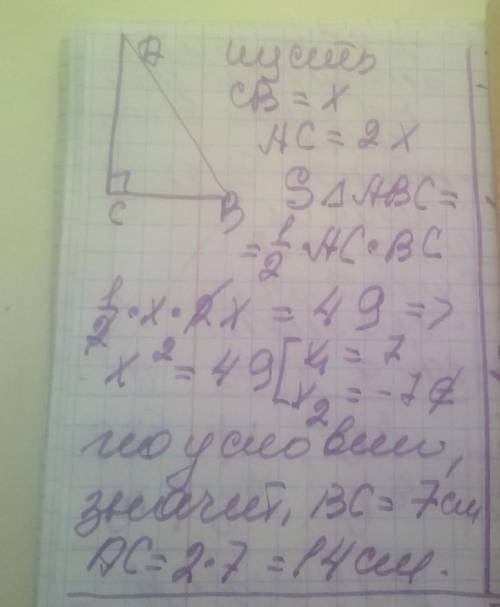 A пусть
CB = x
AC = 2x
C B S△ABC =
= 1/2 · AC · BC
1/2 · x · 2x = 49 =>
x² = 49 [ x₁ = 7
x₂ = -7 ∉
по условию,
значит, BC = 7 см
AC = 2·7 = 14 см.